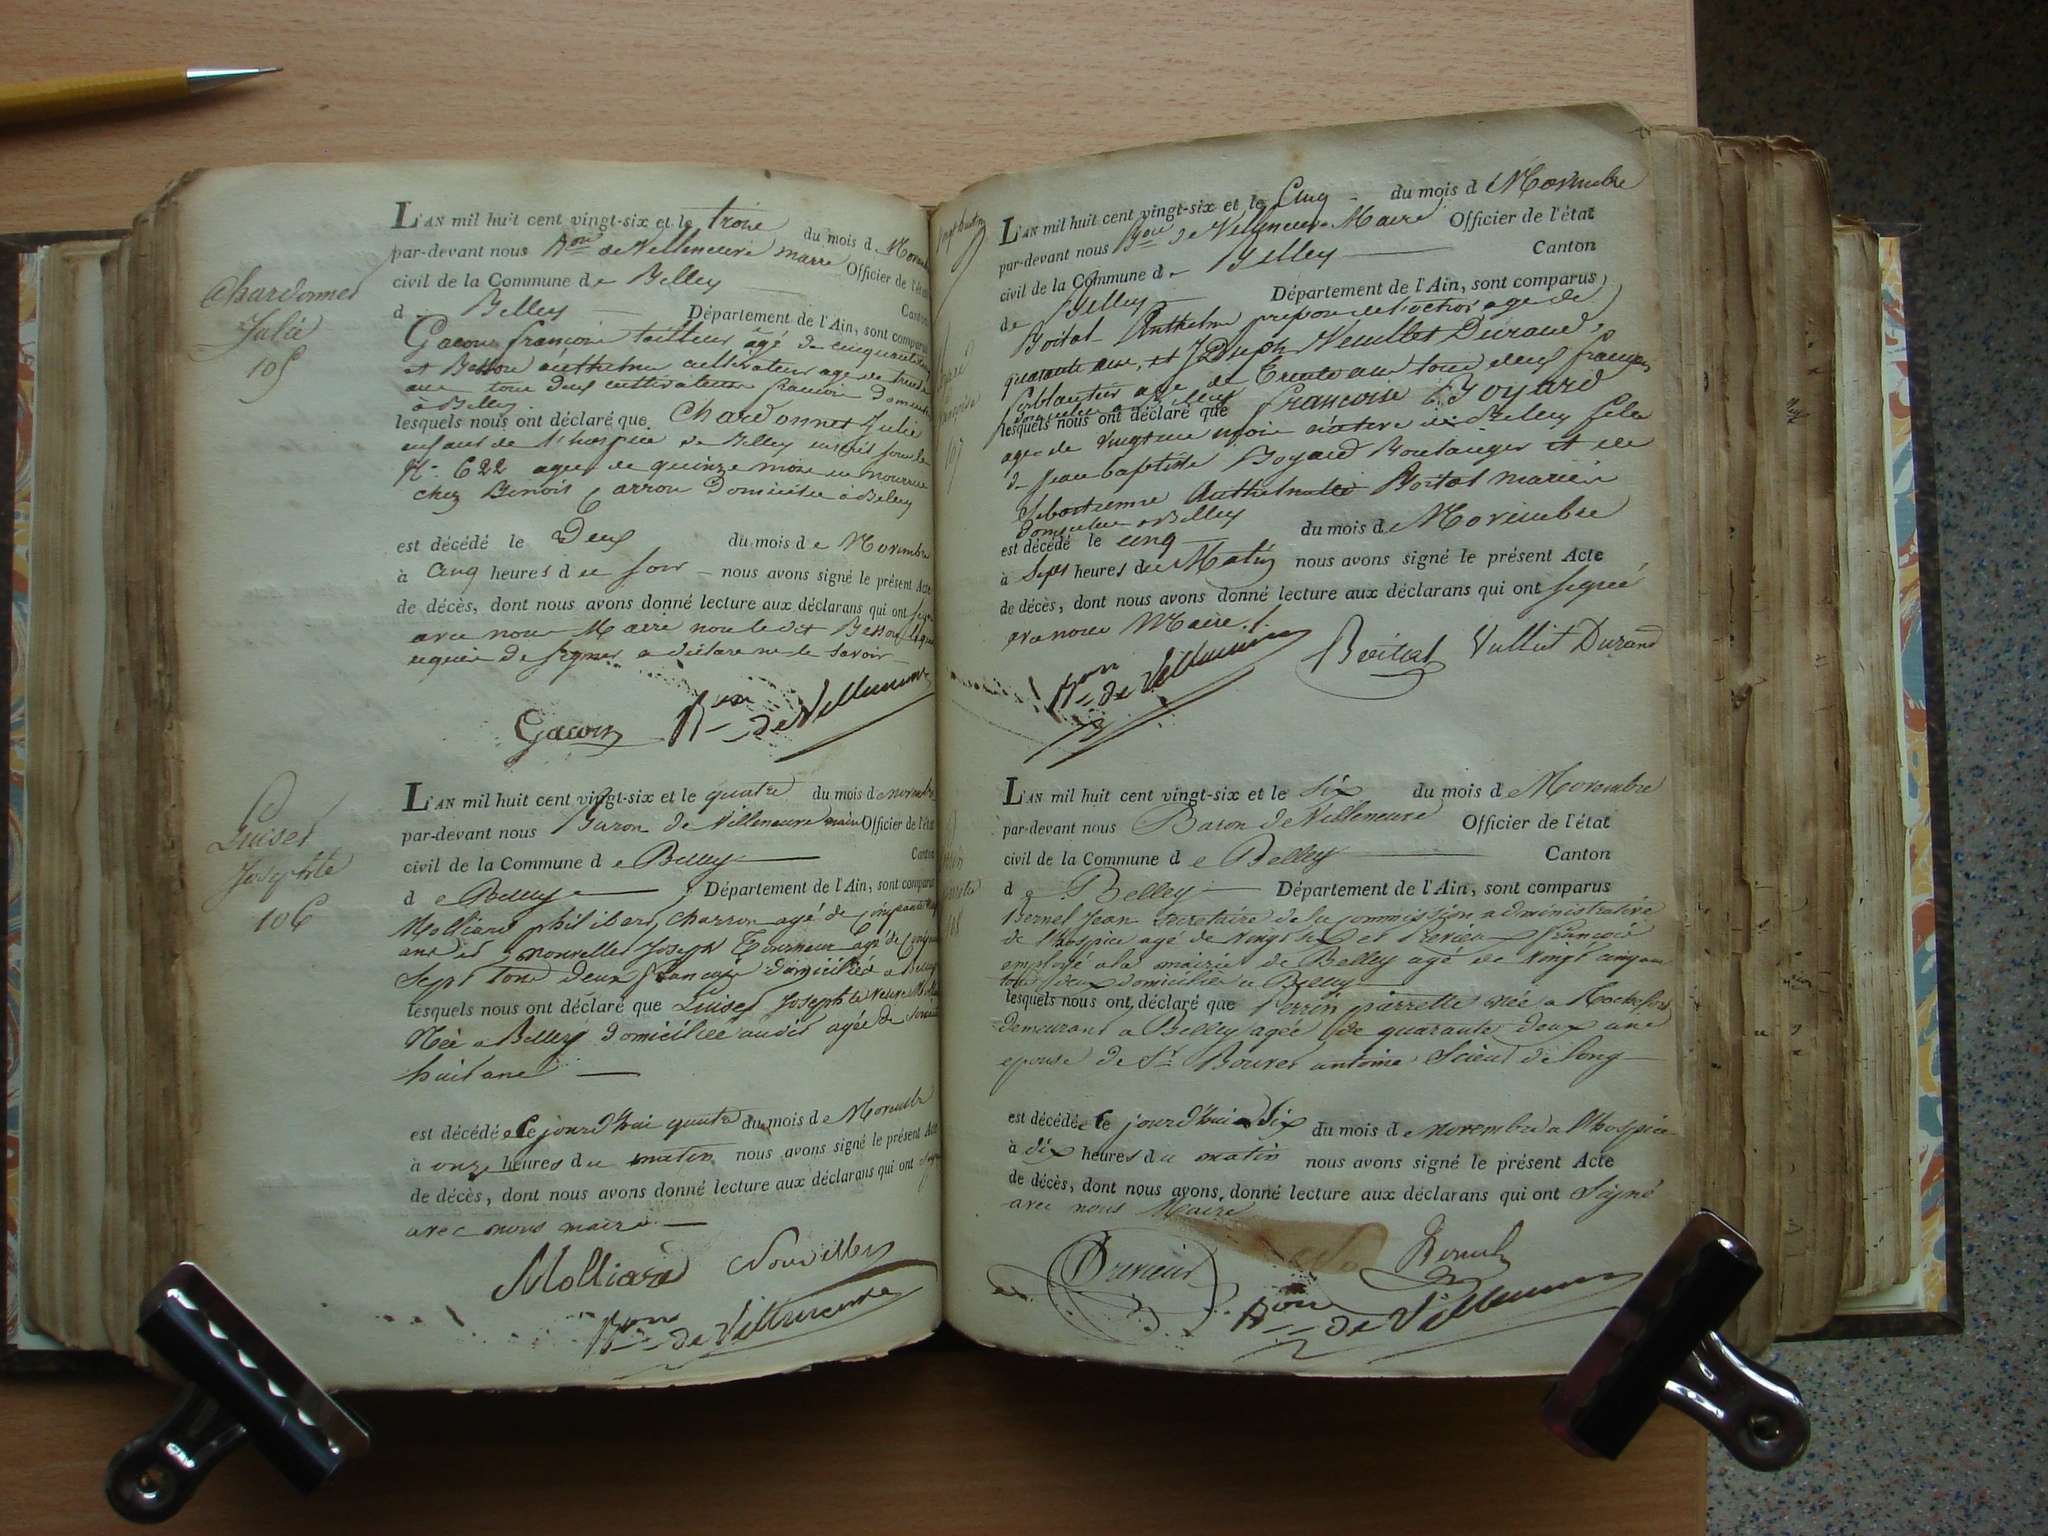 Chardonnet
Julie
105
L'AN mil huit cent vingt-six et le trois du mois d Novem
par-devant nous Bon de Villeneuve maire Officier de l'état
civil de la Commune de Belley
d Belley Département de l'Ain, sont comparus
Gacon françois tailleur âgé de cinquante
et Besson anthelme cultivateur age de trente
ans tous deux cultivateurs francois domicilié
à Belley
lesquels nous ont déclaré que Chardonnet Julie
enfant de l'hospice de Belley inscrit sous le
N° 622 agée de quinze mois en nourrice
chez Benoit Carron Domiciliée à Belley
est décédé le Deux du mois de Novembre
à cinq heures du soir nous avons signé le présent Acte
de décès, dont nous avons donné lecture aux déclarans qui ont signé
avec nous Maire non le dit Besson lequel
requis de signer a déclaré ne le savoir
Gacon Bon de Villeneuve
Guiset
Josephte
106
L'AN mil huit cent vingt-six et le quatre du mois d novembre
par-devant nous Baron de Villeneuve maire Officier de l'état
civil de la Commune de Belley Canton
de Belley Département de l'Ain, sont comparus
Molliard philibert, charron agé de cinquante
ans et Nouvellet Joseph Tourneur agé de cinquante
sept tous deux français domiciliés a Belley
lesquels nous ont déclaré que Guiset Josephte veuve
Née a Belley domiciliée audit agée de
huit ans
est décédée le jourd'hui quatre du mois de Novembre
à onze heures du matin nous avons signé le présent Acte
de décès, dont nous avons donné lecture aux déclarans qui ont signé
avec nous maire
Molliard Nouvellet
Bon de Villeneuve
107
L'AN mil huit cent vingt-six et le Cinq du mois d Novembre
par-devant nous Bon de Villeneuve Maire Officier de l'état
civil de la Commune de Belley Canton
de Belley Département de l'Ain, sont comparus
Boital Anthelme preposé de l'octroi age de
quarante ans, et Joseph Vuillet Durand,
ferblantier age de Trente ans tous deux français
domiciliés a Belley
lesquels nous ont déclaré que francoise Boyard
age de vingt un mois native de Belley fille
de Jean baptiste Boyard Boulanger et de
Sebastienne Anthelmette Boital mariés
Domiciliés a Belley
est décédé le cinq du mois de Novembre
à Sept heures du Matin nous avons signé le présent Acte
de décès, dont nous avons donné lecture aux déclarans qui ont signé
avec nous Maire
Bon de Villeneuve Boital Vulliet Durand
108
L'AN mil huit cent vingt-six et le six du mois d Novembre
par-devant nous Baron de Villeneuve Officier de l'état
civil de la Commune de Belley Canton
de Belley Département de l'Ain, sont comparus
Bernet Jean secretaire de la commission administrative
de l'hospice agé de vingt six et Previeux francois
employé a la mairie de Belley agé de vingt cinq ans
tous deux domiciliés a Belley
lesquels nous ont déclaré que Perrin pierrette née a Rochefort
demeurant a Belley agée de quarante deux ans
epouse de Sr Bouvet antoine Scieur de long
est décédée le jourd'hui six du mois de novembre a l'hospice
à dix heures du matin nous avons signé le présent Acte
de décès, dont nous avons donné lecture aux déclarans qui ont signé
avec nous Maire
Bon de Villeneuve